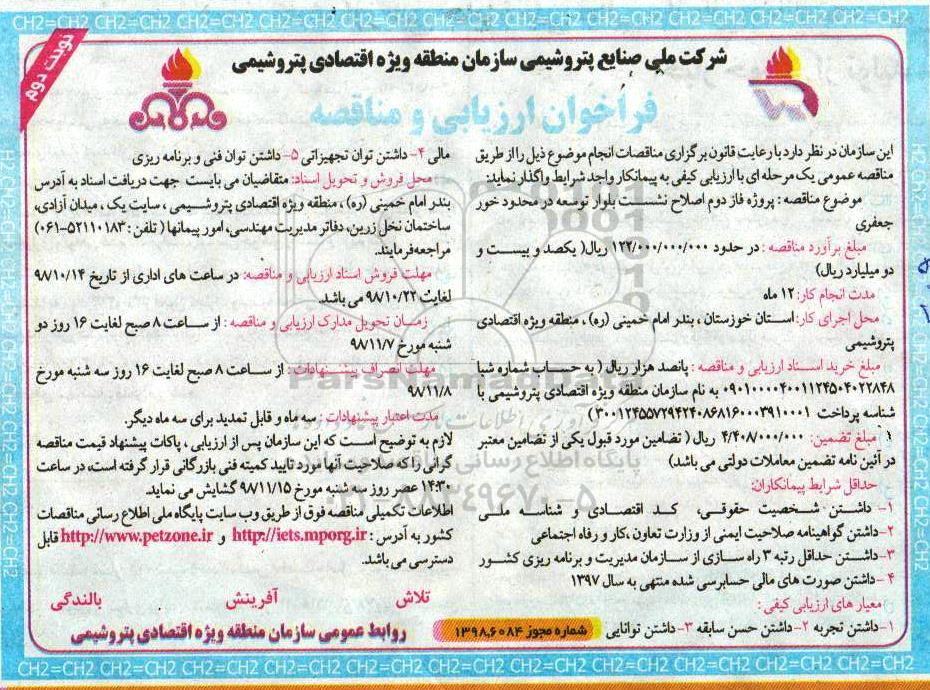 CH2=CH2 CH2=CH2 CH2=CH2 CH2=CH2 CH2=CH2 CH2=CH2 CH2=CH2 CH2=CH2
نوبت دوم
شرکت ملی صنایع پتروشیمی سازمان منطقه ویژه اقتصادی پتروشیمی
فراخوان ارزیابی و مناقصه
این سازمان در نظر دارد با رعایت قانون برگزاری مناقصات انجام موضوع ذیل را از طریق
مناقصه عمومی یک مرحله ای با ارزیابی کیفی به پیمانکار واجد شرایط واگذار نماید:
موضوع مناقصه: پروژه فاز دوم اصلاح نشست بلوار توسعه در محدود خور
جعفری
مبلغ برآورد مناقصه: در حدود ۱۲۲/۰۰۰/۰۰۰/۰۰۰ ریال( یکصد و بیست و
دو میلیارد ریال)
مدت انجام کار: ۱۲ ماه
محل اجرای کار: استان خوزستان، بندر امام خمینی (ره)، منطقه ویژه اقتصادی
پتروشیمی
مبلغ خرید اسناد ارزیابی و مناقصه: پانصد هزار ریال ( به حساب شماره شبا
۰۹۰۱۰۰۰۰۴۰۰۱۱۲۴۵۰۴۰۲۲۸۴۸ به نام سازمان منطقه ویژه اقتصادی پتروشیمی با
شناسه پرداخت ۳۰۰۱۲۴۵۵۷۲۹۴۲۴۰۸۶۸۱۶۰۰۰۳۹۱۰۰۰۱)
مبلغ تضمین: ۴/۴۰۸/۰۰۰/۰۰۰ ریال ( تضامین مورد قبول یکی از تضامین معتبر
در آئین نامه تضمین معاملات دولتی می باشد)
حداقل شرایط پیمانکاران:
۱- داشتن شخصیت حقوقی، کد اقتصادی و شناسه ملی
۲-داشتن گواهینامه صلاحیت ایمنی از وزارت تعاون ،کار و رفاه اجتماعی
۳-داشتن حداقل رتبه ۳ راه سازی از سازمان مدیریت و برنامه ریزی کشور
۴-داشتن صورت های مالی حسابرسی شده منتهی به سال ۱۳۹۷
معیار های ارزیابی کیفی:
۱-داشتن تجربه ۲-داشتن حسن سابقه ۳-داشتن توانایی
مالی ۴-داشتن توان تجهیزاتی ۵-داشتن توان فنی و برنامه ریزی
محل فروش و تحویل اسناد: متقاضیان می بایست جهت دریافت اسناد به آدرس
بندر امام خمینی (ره)، منطقه ویژه اقتصادی پتروشیمی، سایت یک، میدان آزادی،
ساختمان نخل زرین، دفاتر مدیریت مهندسی، امور پیمانها ( تلفن: ۵۲۱۱۰۱۸۳-۰۶۱)
مراجعه فرمایند.
مهلت فروش اسناد ارزیابی و مناقصه: در ساعت های اداری از تاریخ ۹۸/۱۰/۱۴
لغایت ۹۸/۱۰/۲۲ می باشد.
زمان تحویل مدارک ارزیابی و مناقصه: از ساعت ۸ صبح لغایت ۱۶ روز دو
شنبه مورخ ۹۸/۱۱/۷
مهلت انصراف پیشنهادات: از ساعت ۸ صبح لغایت ۱۶ روز سه شنبه مورخ
۹۸/۱۱/۸
مدت اعتبار پیشنهادات: سه ماه و قابل تمدید برای سه ماه دیگر.
لازم به توضیح است که این سازمان پس از ارزیابی، پاکات پیشنهاد قیمت مناقصه
گرانی را که صلاحیت آنها مورد تایید کمیته فنی بازرگانی قرار گرفته است، در ساعت
۱۴:۳۰ عصر روز سه شنبه مورخ ۹۸/۱۱/۱۵ گشایش می نماید.
اطلاعات تکمیلی مناقصه فوق از طریق وب سایت پایگاه ملی اطلاع رسانی مناقصات
کشور به آدرس: http://iets.mporg.ir و http://www.petzone.ir قابل
دسترسی می باشد.
تلاش آفرینش بالندگی
روابط عمومی سازمان منطقه ویژه اقتصادی پتروشیمی
شماره مجوز ۱۳۹۸.۶۰۸۴
ParsNamadData
پایگاه اطلاع رسانی
۰۲۱-۸۸۳۴۹۶۷۰-۵
CH2=CH2 CH2=CH2 CH2=CH2 CH2=CH2 CH2=CH2 CH2=CH2 CH2=CH2 CH2=CH2